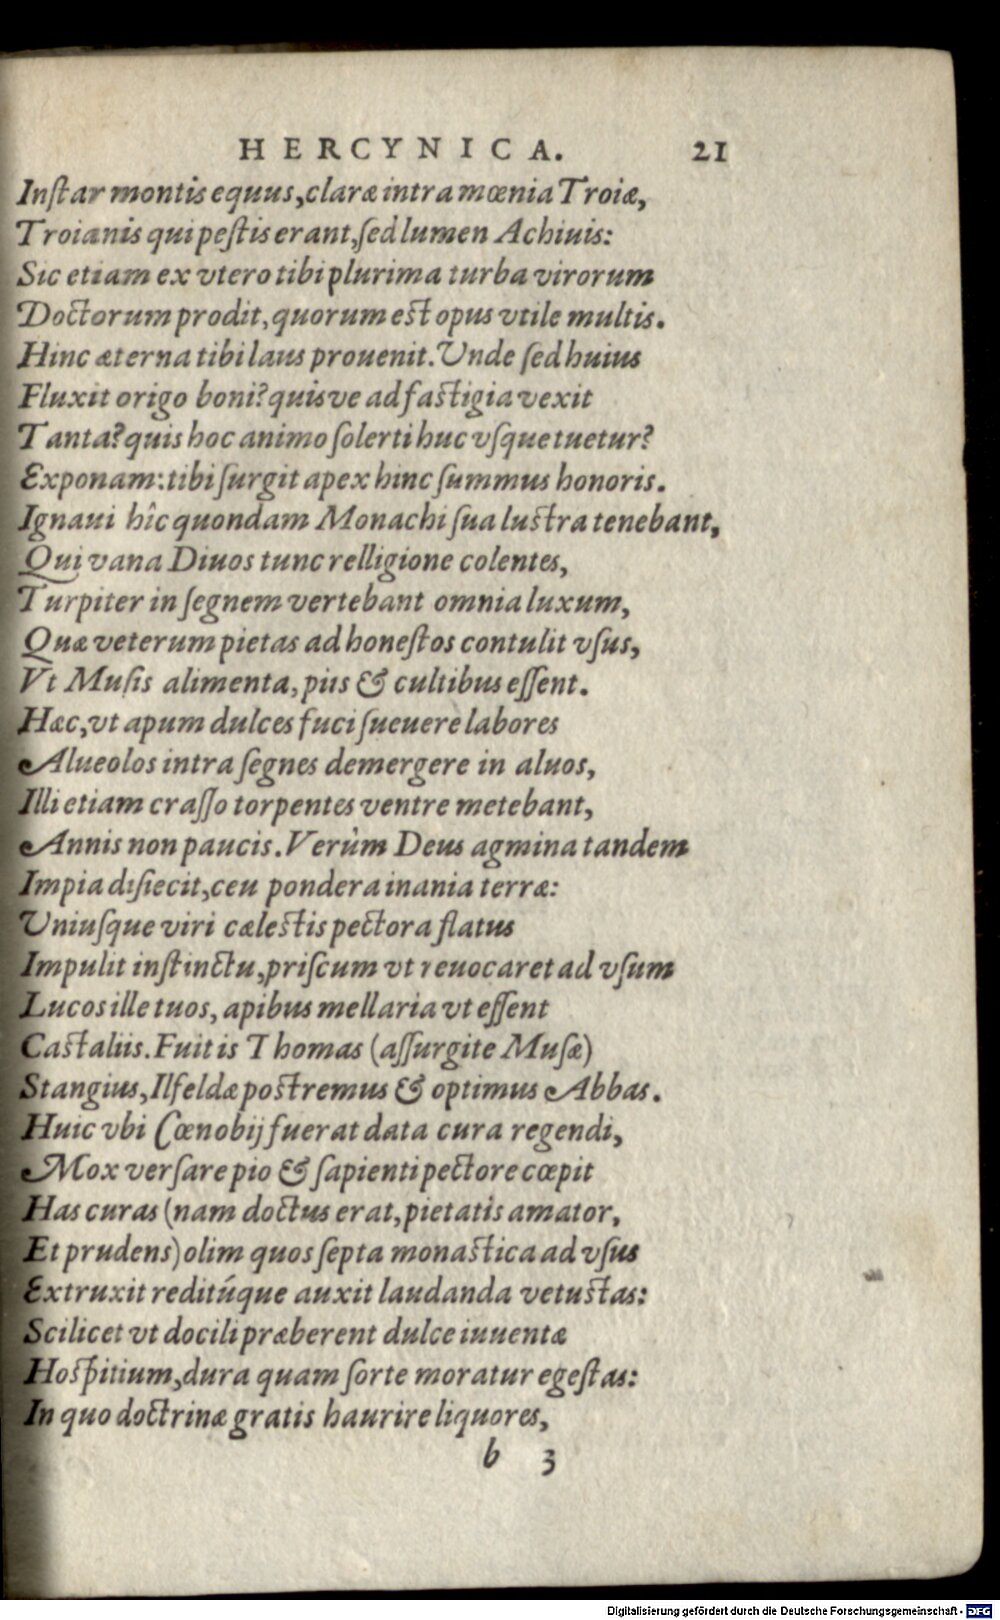 HERCYNICA. 21
Inſtar montis equus, claræ intra mœnia Troiæ,
Troianis qui peſtis erant, ſed lumen Achiuis:
Sic etiam ex vtero tibi plurima turba virorum
Doctorum prodit, quorum eſt opus vtile multis.
Hinc æterna tibi laus prouenit. Unde ſed huius
Fluxit origo boni? quisve ad faſtigia vexit
Tanta? quis hoc animo ſolerti huc vſque tuetur?
Exponam: tibi ſurgit apex hinc ſummus honoris.
Ignaui hîc quondam Monachi ſua luſtra tenebant,
Qui vana Diuos tunc relligione colentes,
Turpiter in ſegnem vertebant omnia luxum,
Quæ veterum pietas ad honeſtos contulit vſus,
Vt Muſis alimenta, piis & cultibus eſſent.
Hæc, vt apum dulces fuci ſueuere labores
Alueolos intra ſegnes demergere in aluos,
Illi etiam craſſo torpentes ventre metebant,
Annis non paucis. Verùm Deus agmina tandem
Impia diſiecit, ceu pondera inania terræ:
Uniuſque viri cæleſtis pectora flatus
Impulit inſtinctu, priſcum vt reuocaret ad vſum
Lucos ille tuos, apibus mellaria vt eſſent
Caſtaliis. Fuit is Thomas (aſſurgite Muſæ)
Stangius, Ilfeldæ poſtremus & optimus Abbas.
Huic vbi Cœnobij fuerat data cura regendi,
Mox verſare pio & ſapienti pectore cœpit
Has curas (nam doctus erat, pietatis amator,
Et prudens) olim quos ſepta monaſtica ad vſus
Extruxit reditúque auxit laudanda vetuſtas:
Scilicet vt docili præberent dulce iuuentæ
Hoſpitium, dura quam ſorte moratur egeſtas:
In quo doctrinæ gratis haurire liquores,
b 3
Digitalisierung gefördert durch die Deutsche Forschungsgemeinschaft - DFG